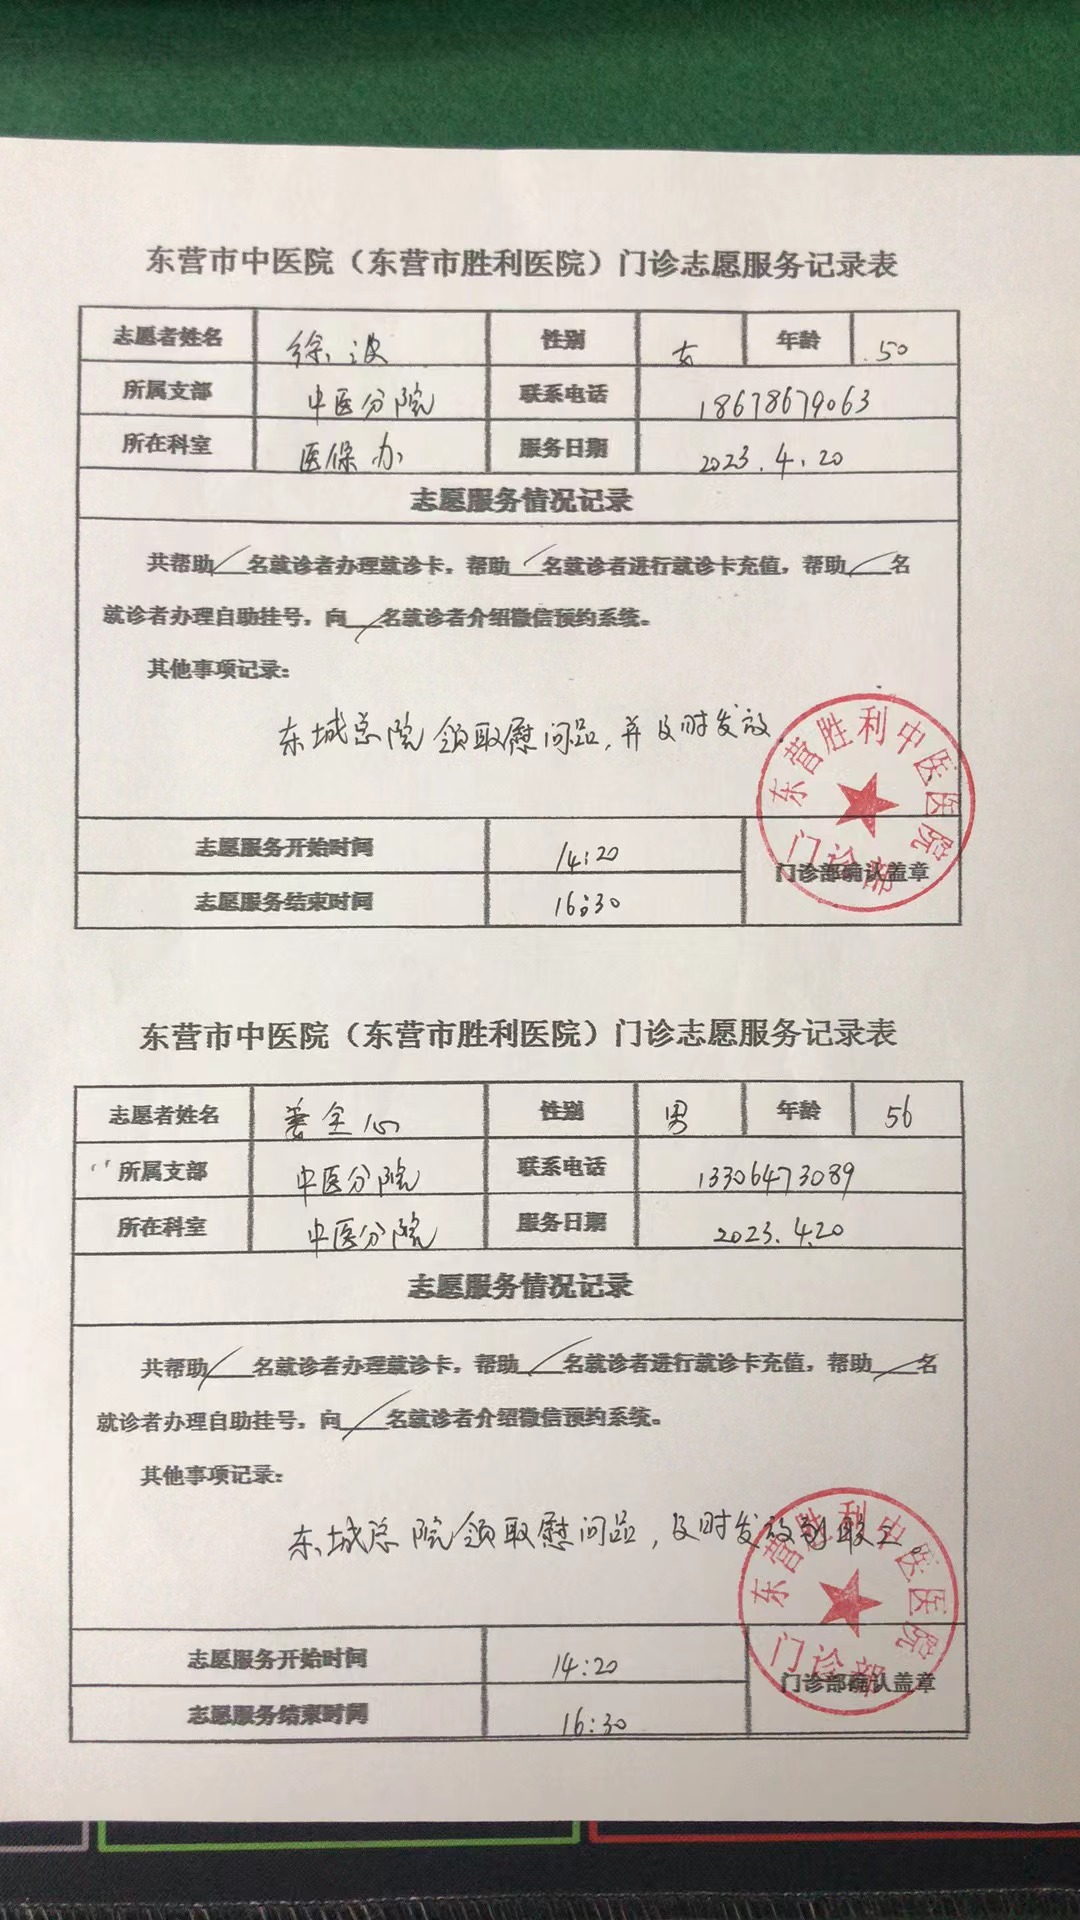 东营市中医院（东营市胜利医院）门诊志愿服务记录表
志愿者姓名 徐波 性别 女 年龄 50
所属支部 中医分院 联系电话 18678679063
所在科室 医保办 服务日期 2023.4.20
志愿服务情况记录
共帮助／名就诊者办理就诊卡，帮助／名就诊者进行就诊卡充值，帮助／名
就诊者办理自助挂号，向／名就诊者介绍微信预约系统。
其他事项记录：
东城总院领取慰问品，并及时发放
东营胜利中医医院
门诊部
志愿服务开始时间 14:20
门诊部确认盖章
志愿服务结束时间 16:30
东营市中医院（东营市胜利医院）门诊志愿服务记录表
志愿者姓名 全心 性别 男 年龄 56
所属支部 中医分院 联系电话 13306473089
所在科室 中医分院 服务日期 2023.4.20
志愿服务情况记录
共帮助／名就诊者办理就诊卡，帮助／名就诊者进行就诊卡充值，帮助／名
就诊者办理自助挂号，向／名就诊者介绍微信预约系统。
其他事项记录：
东城总院领取慰问品，及时发放到职工。
东营胜利中医医院
门诊部
志愿服务开始时间 14:20
门诊部确认盖章
志愿服务结束时间 16:30